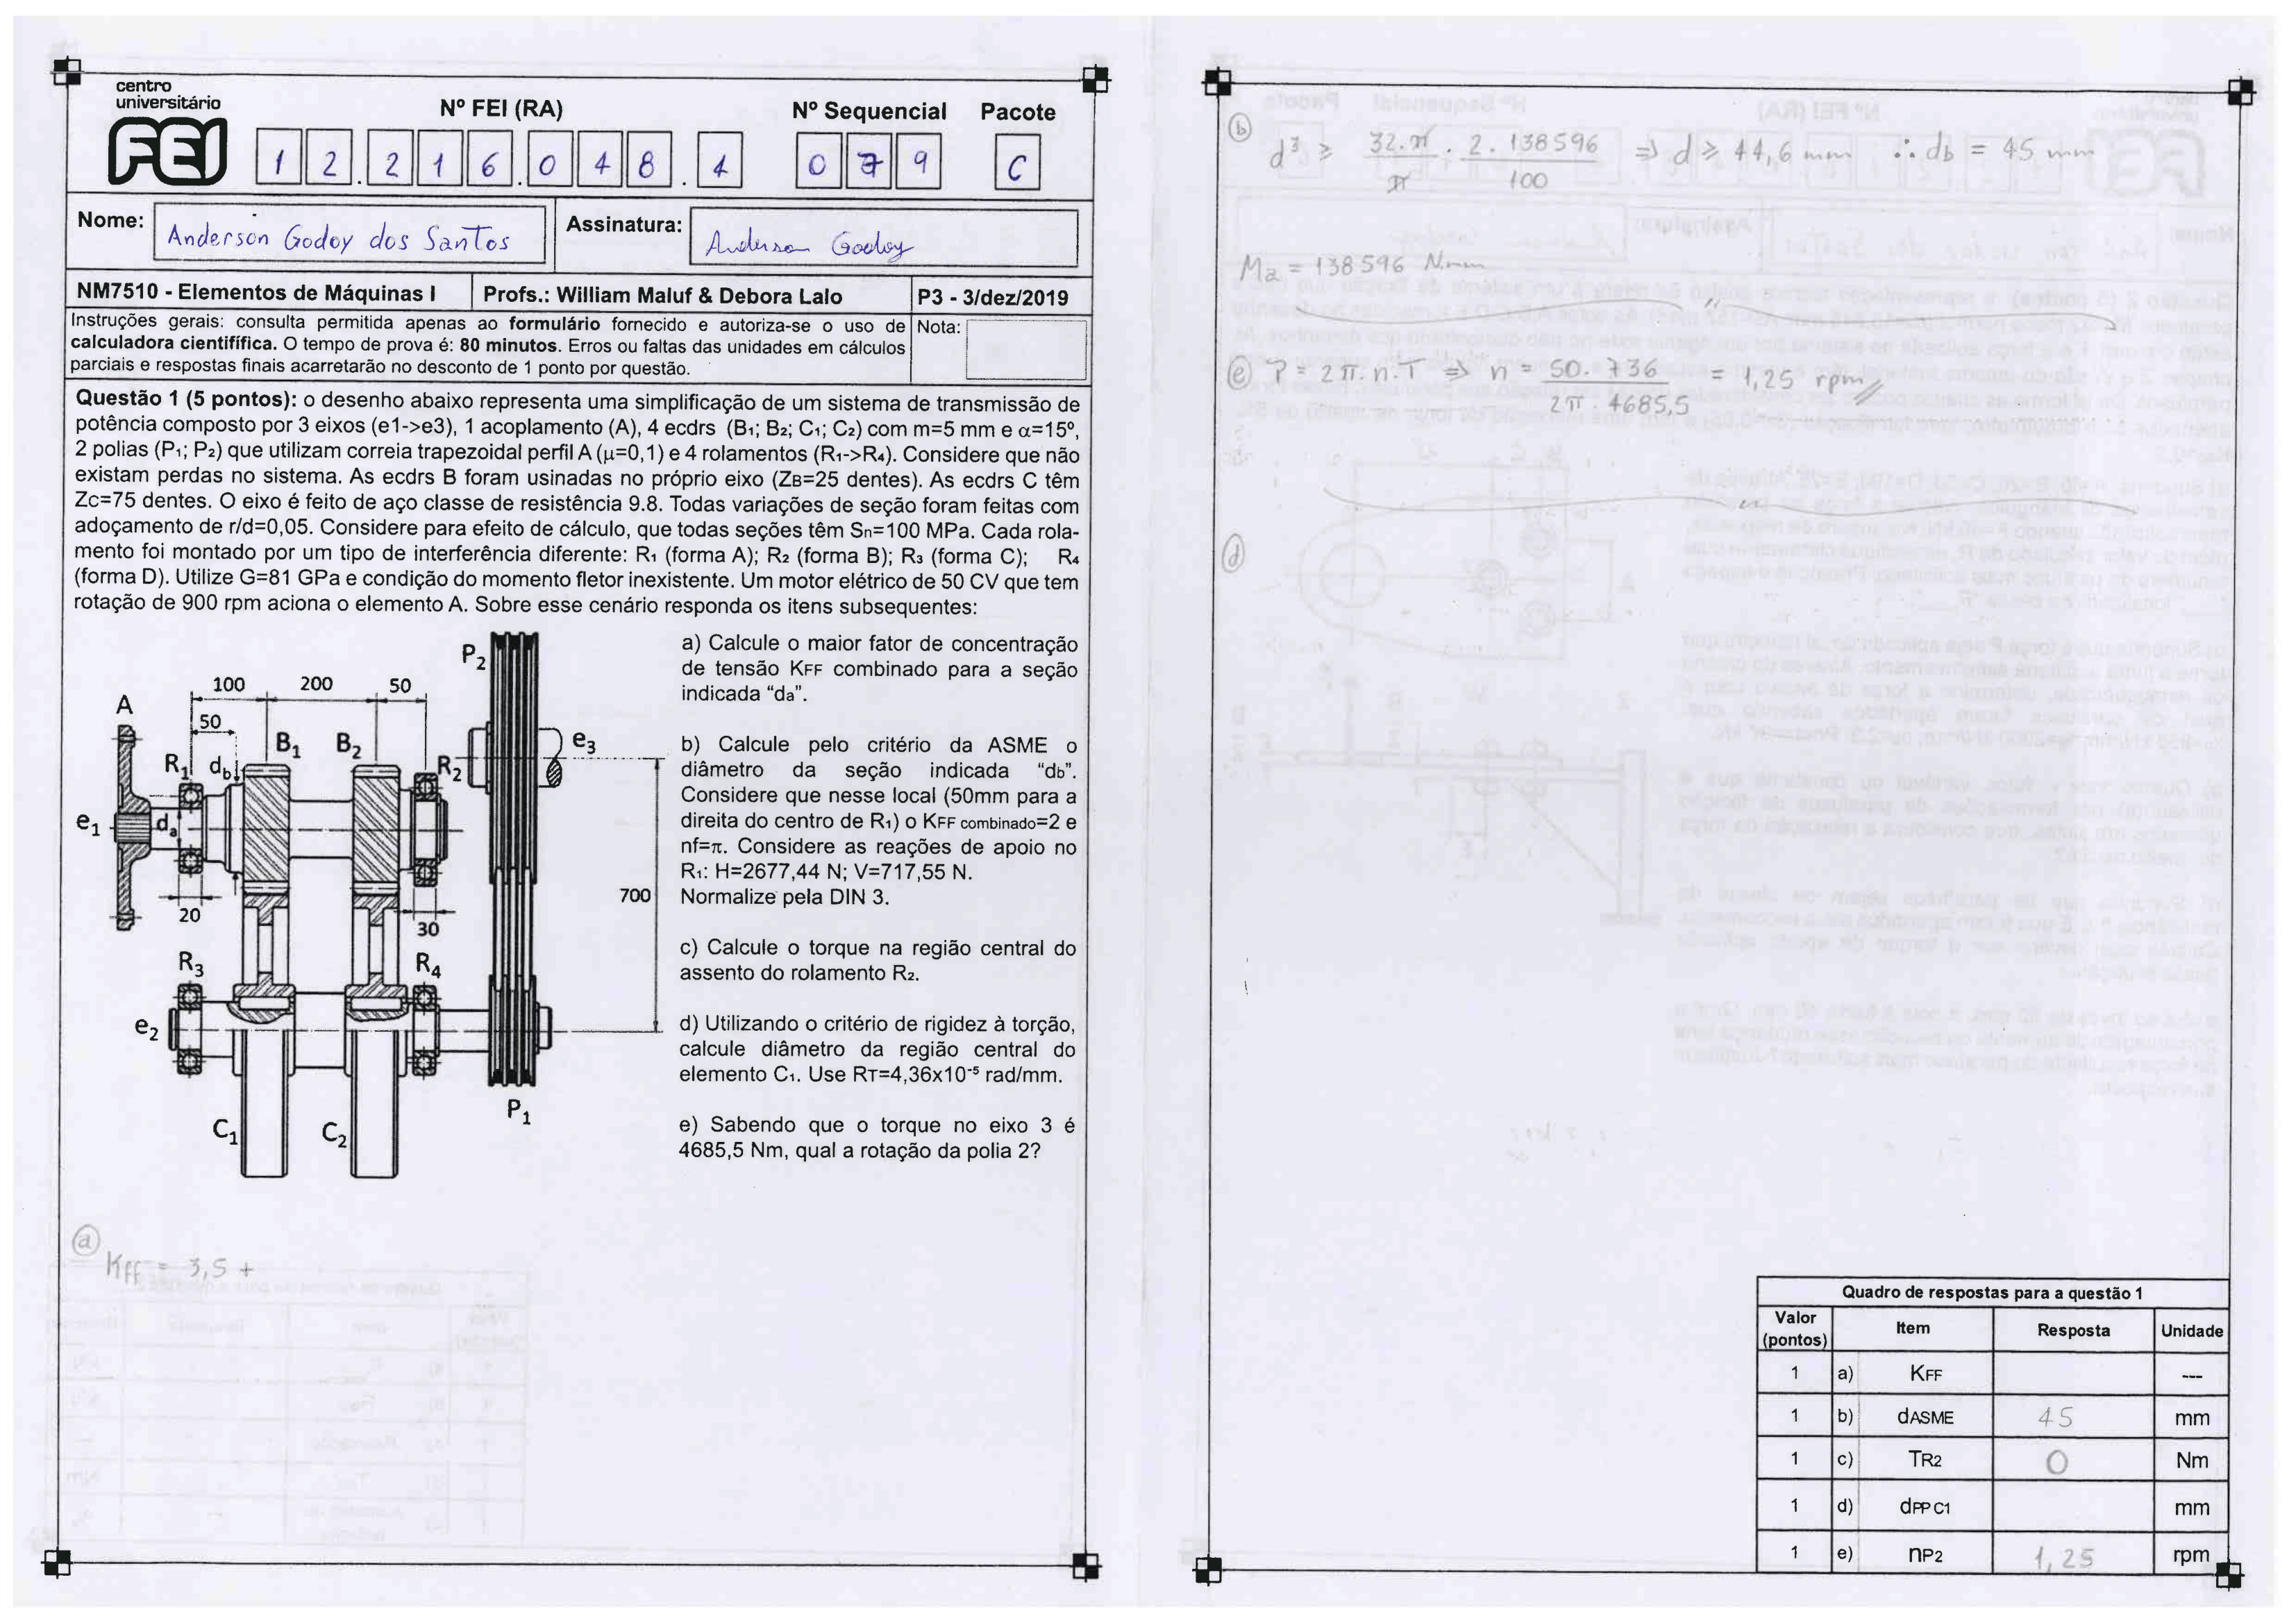 centro
universitário
FEI
Nº FEI (RA)
Nº Sequencial
Pacote
1 2 . 2 1 6 . 0 4 8 . 1
0 7 9
C
Nome: Anderson Godoy dos Santos
Assinatura: Anderson Godoy
NM7510 - Elementos de Máquinas I
Profs.: William Maluf & Debora Lalo
P3 - 3/dez/2019
Instruções gerais: consulta permitida apenas ao formulário fornecido e autoriza-se o uso de
calculadora cientifífica. O tempo de prova é: 80 minutos. Erros ou faltas das unidades em cálculos
parciais e respostas finais acarretarão no desconto de 1 ponto por questão.
Nota:
Questão 1 (5 pontos): o desenho abaixo representa uma simplificação de um sistema de transmissão de
potência composto por 3 eixos (e1->e3), 1 acoplamento (A), 4 ecdrs (B1; B2; C1; C2) com m=5 mm e α=15º,
2 polias (P1; P2) que utilizam correia trapezoidal perfil A (μ=0,1) e 4 rolamentos (R1->R4). Considere que não
existam perdas no sistema. As ecdrs B foram usinadas no próprio eixo (ZB=25 dentes). As ecdrs C têm
Zc=75 dentes. O eixo é feito de aço classe de resistência 9.8. Todas variações de seção foram feitas com
adoçamento de r/d=0,05. Considere para efeito de cálculo, que todas seções têm Sn=100 MPa. Cada rola-
mento foi montado por um tipo de interferência diferente: R1 (forma A); R2 (forma B); R3 (forma C); R4
(forma D). Utilize G=81 GPa e condição do momento fletor inexistente. Um motor elétrico de 50 CV que tem
rotação de 900 rpm aciona o elemento A. Sobre esse cenário responda os itens subsequentes:
100
200
50
50
A
R1
db
B1
B2
R2
P2
e3
e1
da
20
30
700
R3
R4
e2
C1
C2
P1
a) Calcule o maior fator de concentração
de tensão KFF combinado para a seção
indicada “da”.
b) Calcule pelo critério da ASME o
diâmetro da seção indicada “db”.
Considere que nesse local (50mm para a
direita do centro de R1) o KFF combinado=2 e
nf=π. Considere as reações de apoio no
R1: H=2677,44 N; V=717,55 N.
Normalize pela DIN 3.
c) Calcule o torque na região central do
assento do rolamento R2.
d) Utilizando o critério de rigidez à torção,
calcule diâmetro da região central do
elemento C1. Use RT=4,36x10⁻⁵ rad/mm.
e) Sabendo que o torque no eixo 3 é
4685,5 Nm, qual a rotação da polia 2?
(a)
Kff = 3,5 +
(b) d³ ≥ 32.π/π . 2.138596/100 ⇒ d ≥ 44,6 mm ∴ db = 45 mm
Ma = 138596 N.mm
(e) P = 2π.n.T ⇒ n = 50.736/2π.4685,5 = 1,25 rpm
(d)
Quadro de respostas para a questão 1
Valor (pontos) Item Resposta Unidade
1 a) KFF ---
1 b) dASME 45 mm
1 c) TR2 0 Nm
1 d) dPP C1 mm
1 e) nP2 1,25 rpm